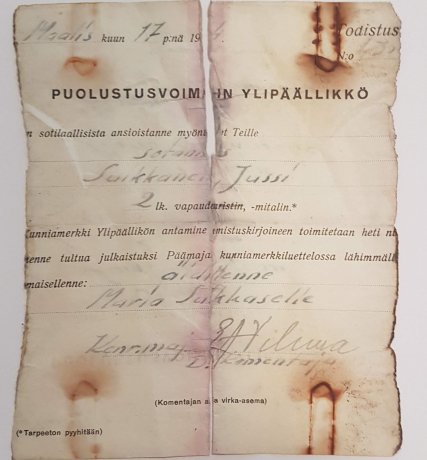 Maalis kuun 17 p:nä 19
Todistus
N:o
PUOLUSTUSVOIMAIN YLIPÄÄLLIKKÖ
on sotilaallisista ansioistanne myöntänyt Teille
sotamies
Saikkanen, Jussi
2 lk. vapaudenristin, -mitalin.*
Kunniamerkki Ylipäällikön antamine omistuskirjoineen toimitetaan heti ni
menne tultua julkaistuksi Päämajan kunniamerkkiluettelossa lähimmäll
omaisellenne: äidillenne
Maria Saikkaselle
Kenr.maj.
komentaja
(Komentajan ja virka-asema)
(*Tarpeeton pyyhitään)